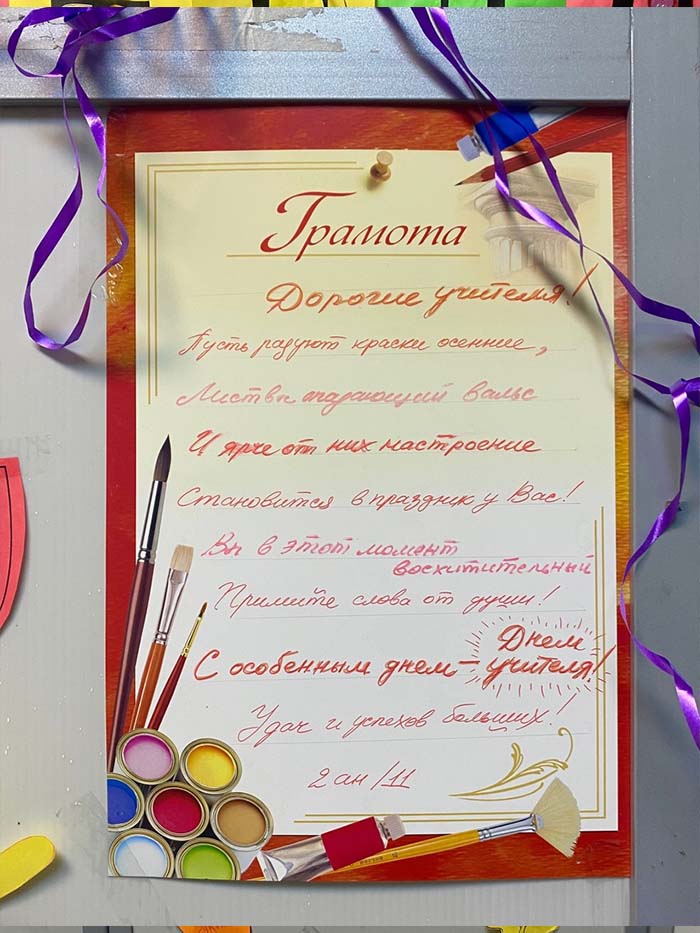 Грамота
Дорогие учителя!
Пусть радуют краски осенние,
Листвы опадающий вальс
И ярче от них настроение
Становится в праздник у Вас!
Вы в этот момент
восхитительный
Примите слова от души!
С особенным днем – Днем
учителя!
Удач и успехов больших!
2 ан /11